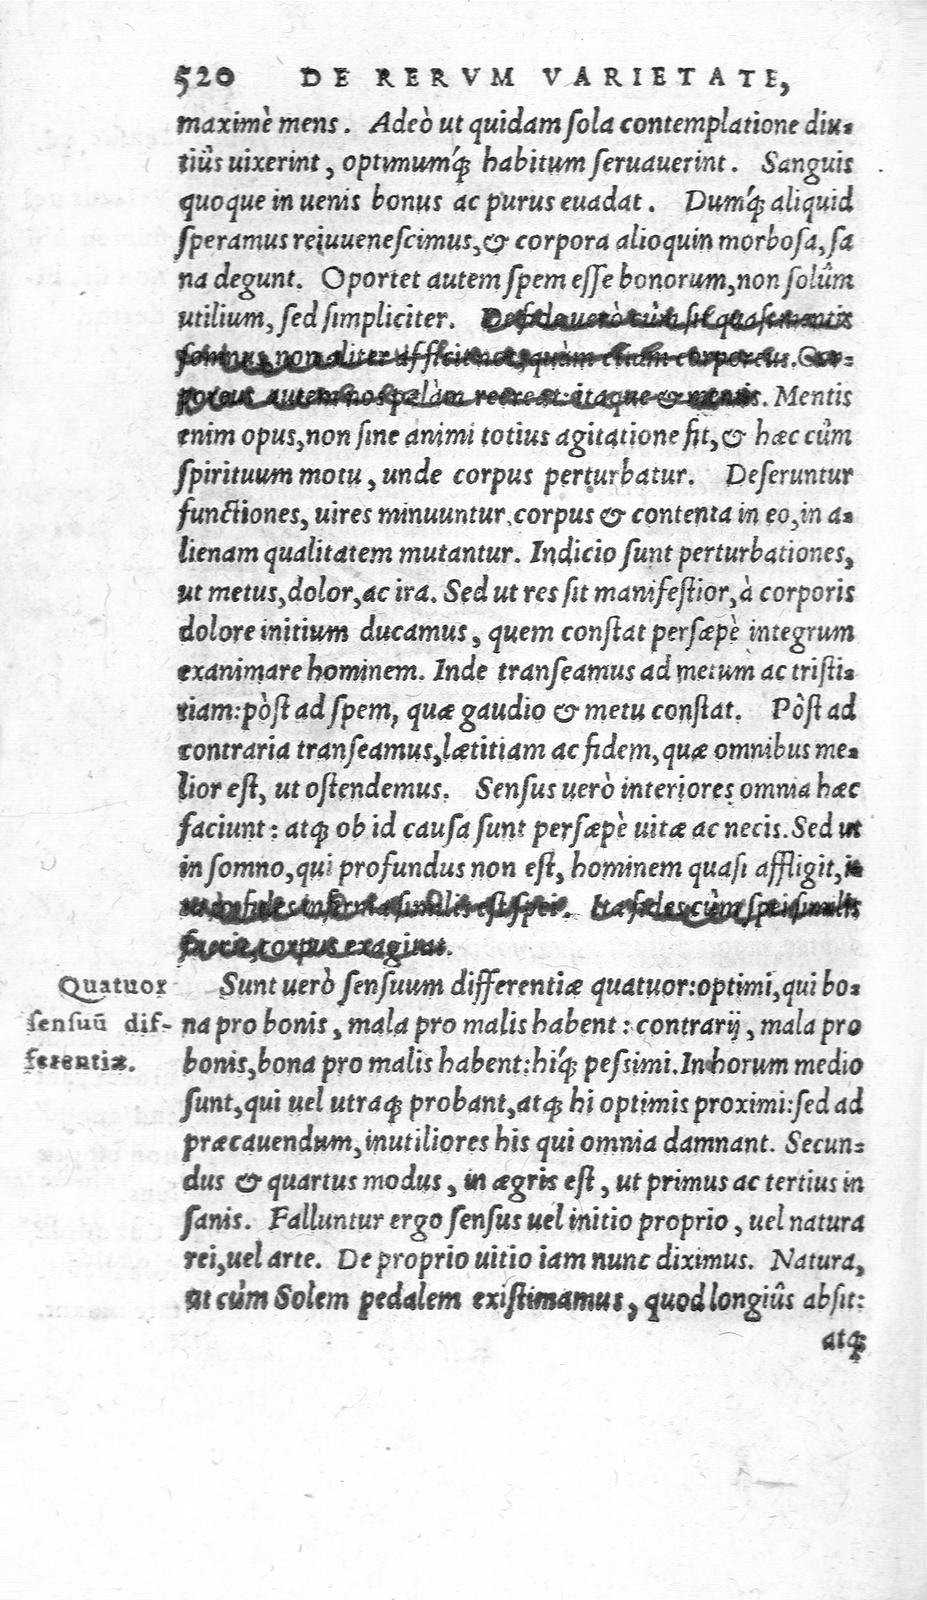 520 DE RERVM VARIETATE,
maximè mens. Adeò ut quidam ſola contemplatione diu-
tiùs uixerint, optimumq́ꝫ habitum ſeruauerint. Sanguis
quoque in uenis bonus ac purus euadat. Dumq́ꝫ aliquid
ſperamus reiuueneſcimus, & corpora alioquin morboſa, ſa
na degunt. Oportet autem ſpem eſſe bonorum, non ſolûm
utilium, ſed ſimpliciter. uerò cùm ſit quaſi mentis
ſomnus, non aliter nos, quàm corporeus. Cor-
poreus autem nos palàm recreat: itaque & mentis. Mentis
enim opus, non ſine animi totius agitatione fit, & hæc cûm
ſpirituum motu, unde corpus perturbatur. Deſeruntur
functiones, uires minuuntur, corpus & contenta in eo, in a-
lienam qualitatem mutantur. Indicio ſunt perturbationes,
ut metus, dolor, ac ira. Sed ut res ſit manifeſtior, à corporis
dolore initium ducamus, quem conſtat perſæpè integrum
exanimare hominem. Inde tranſeamus ad metum ac triſti-
tiam: pòſt ad ſpem, quæ gaudio & metu conſtat. Pòſt ad
contraria tranſeamus, lætitiam ac fidem, quæ omnibus me-
lior eſt, ut oſtendemus. Senſus uerò interiores omnia hæc
faciunt: atqꝫ ob id cauſa ſunt perſæpè uitæ ac necis. Sed ut
in ſomno, qui profundus non eſt, hominem quaſi affligit, i-
fides infirma ſimilis eſt ſpei. Ita fides cùm ſpei ſimilis
fuerit, corpus exagitat.
Quatuor
ſenſuū dif-
ferentiæ.
Sunt uerò ſenſuum differentiæ quatuor: optimi, qui bo-
na pro bonis, mala pro malis habent: contrarij, mala pro
bonis, bona pro malis habent: hiq́ꝫ peſsimi. In horum medio
ſunt, qui uel utraqꝫ probant, atqꝫ hi optimis proximi: ſed ad
præcauendum, inutiliores his qui omnia damnant. Secun-
dus & quartus modus, in ægris eſt, ut primus ac tertius in
ſanis. Falluntur ergo ſenſus uel initio proprio, uel natura
rei, uel arte. De proprio uitio iam nunc diximus. Natura,
ut cùm Solem pedalem exiſtimamus, quod longiûs abſit:
atqꝫ